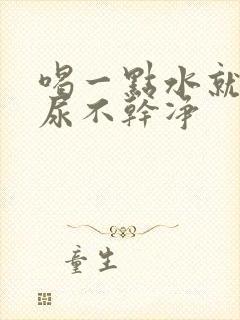 喝一點水就
尿不幹净
童生